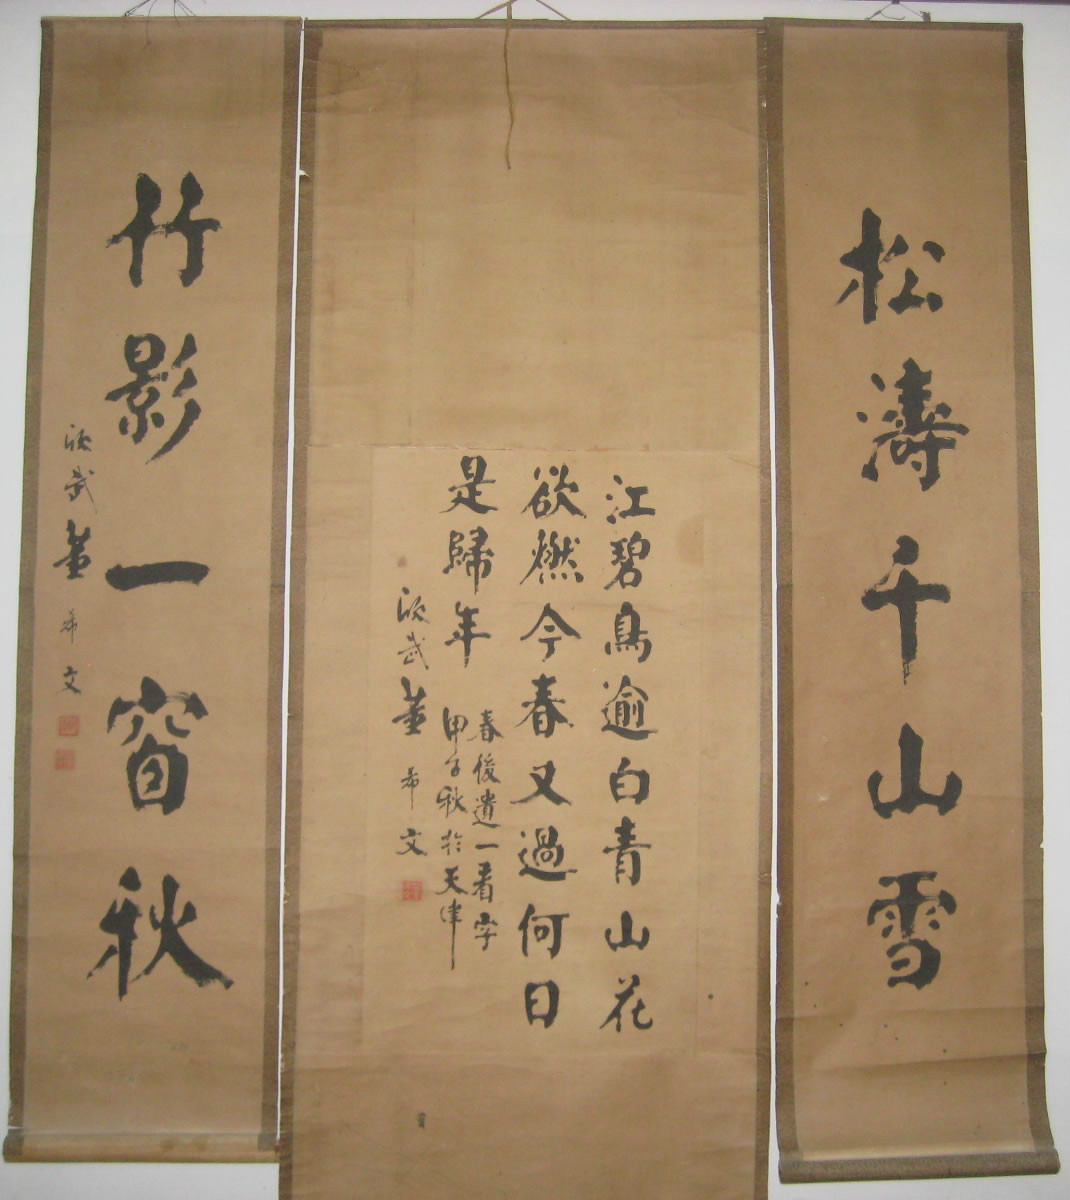 松濤千山雪
江碧鳥逾白青山花
欲燃今春又過何日
是歸年
春後遺一看字
甲子秋於天津
武董希文
竹影一窗秋
武董希文